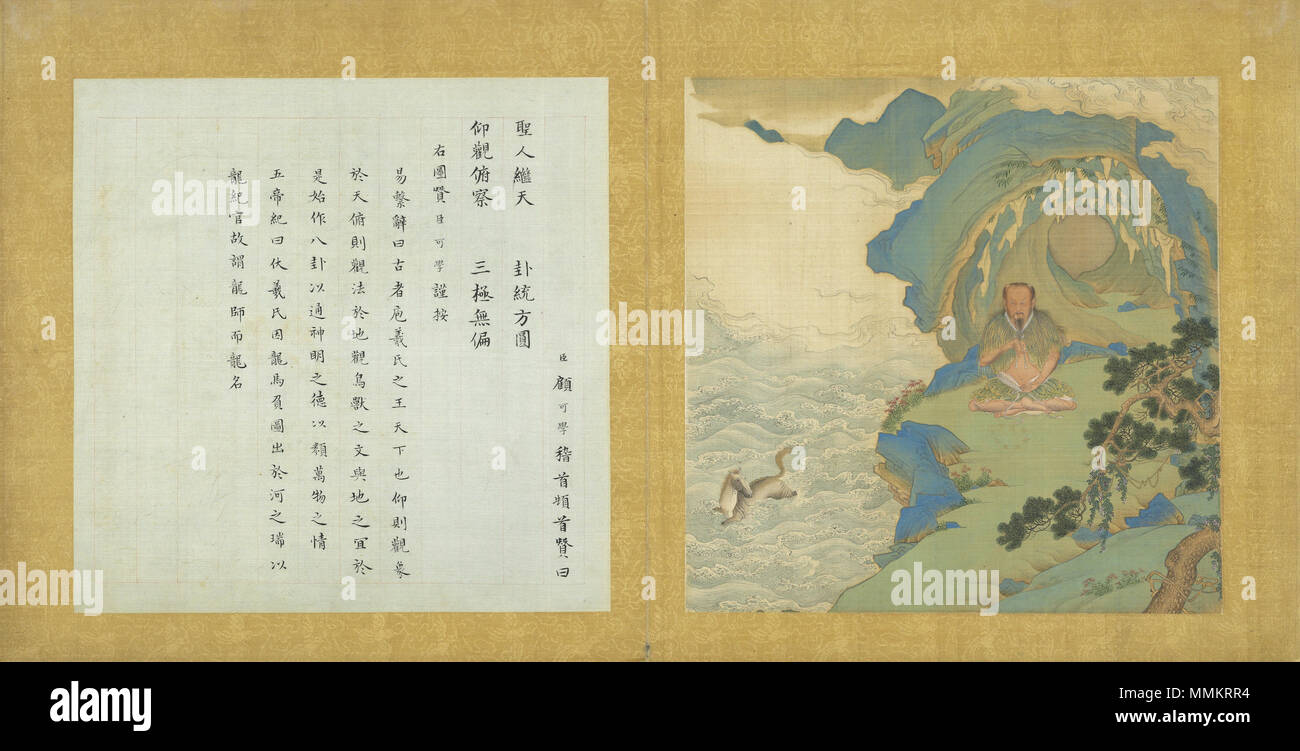 臣顧可學稽首頓首贊曰
聖人繼天　卦統方圓
仰觀俯察　三極無偏
右圖贊臣可學謹按
易繫辭曰古者庖羲氏之王天下也仰則觀象
於天俯則觀法於地觀鳥獸之文與地之宜於
是始作八卦以通神明之德以類萬物之情
五帝紀曰伏羲氏因龍馬負圖出於河之瑞以
龍紀官故謂龍師而龍名
alamy
alamy stock photo
alamy
MMKRR4
www.alamy.com